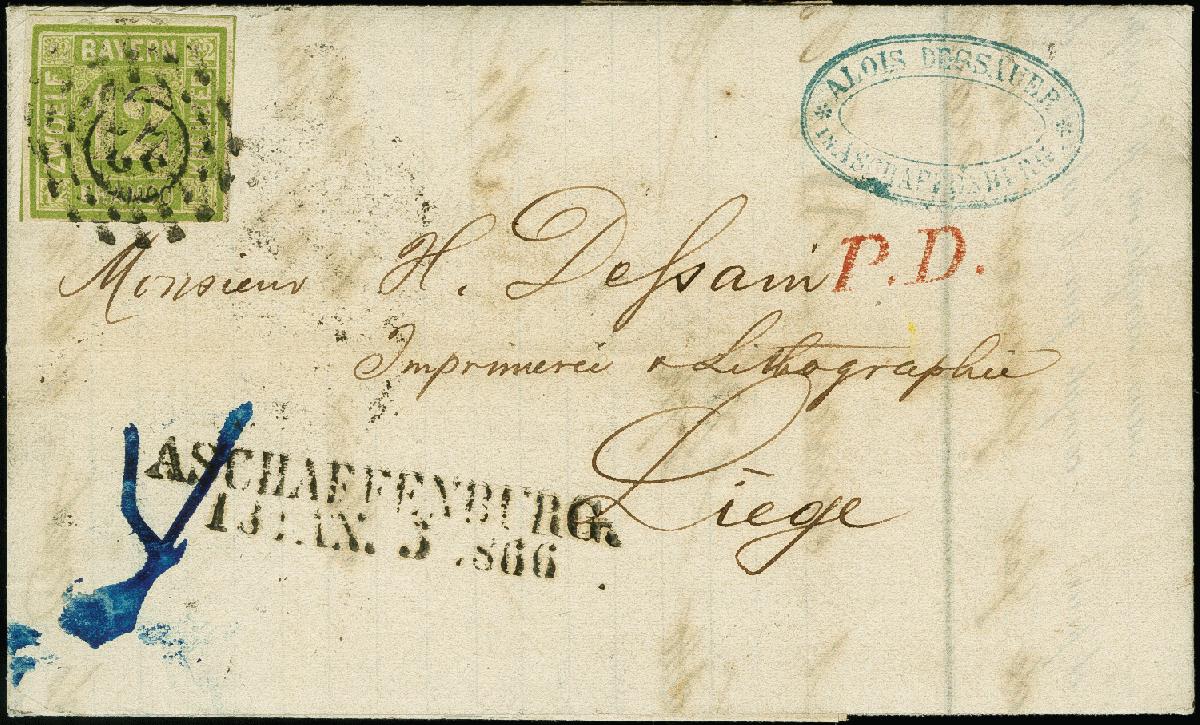 BAYERN
ZWOELF
12
ALOIS DESSAUER
IN ASCHAFFENBURG
P.D.
Monsieur H. Dessain
Imprimerie & Lithographie
Liège
ASCHAFFENBURG.
13 JAN. 5 1866